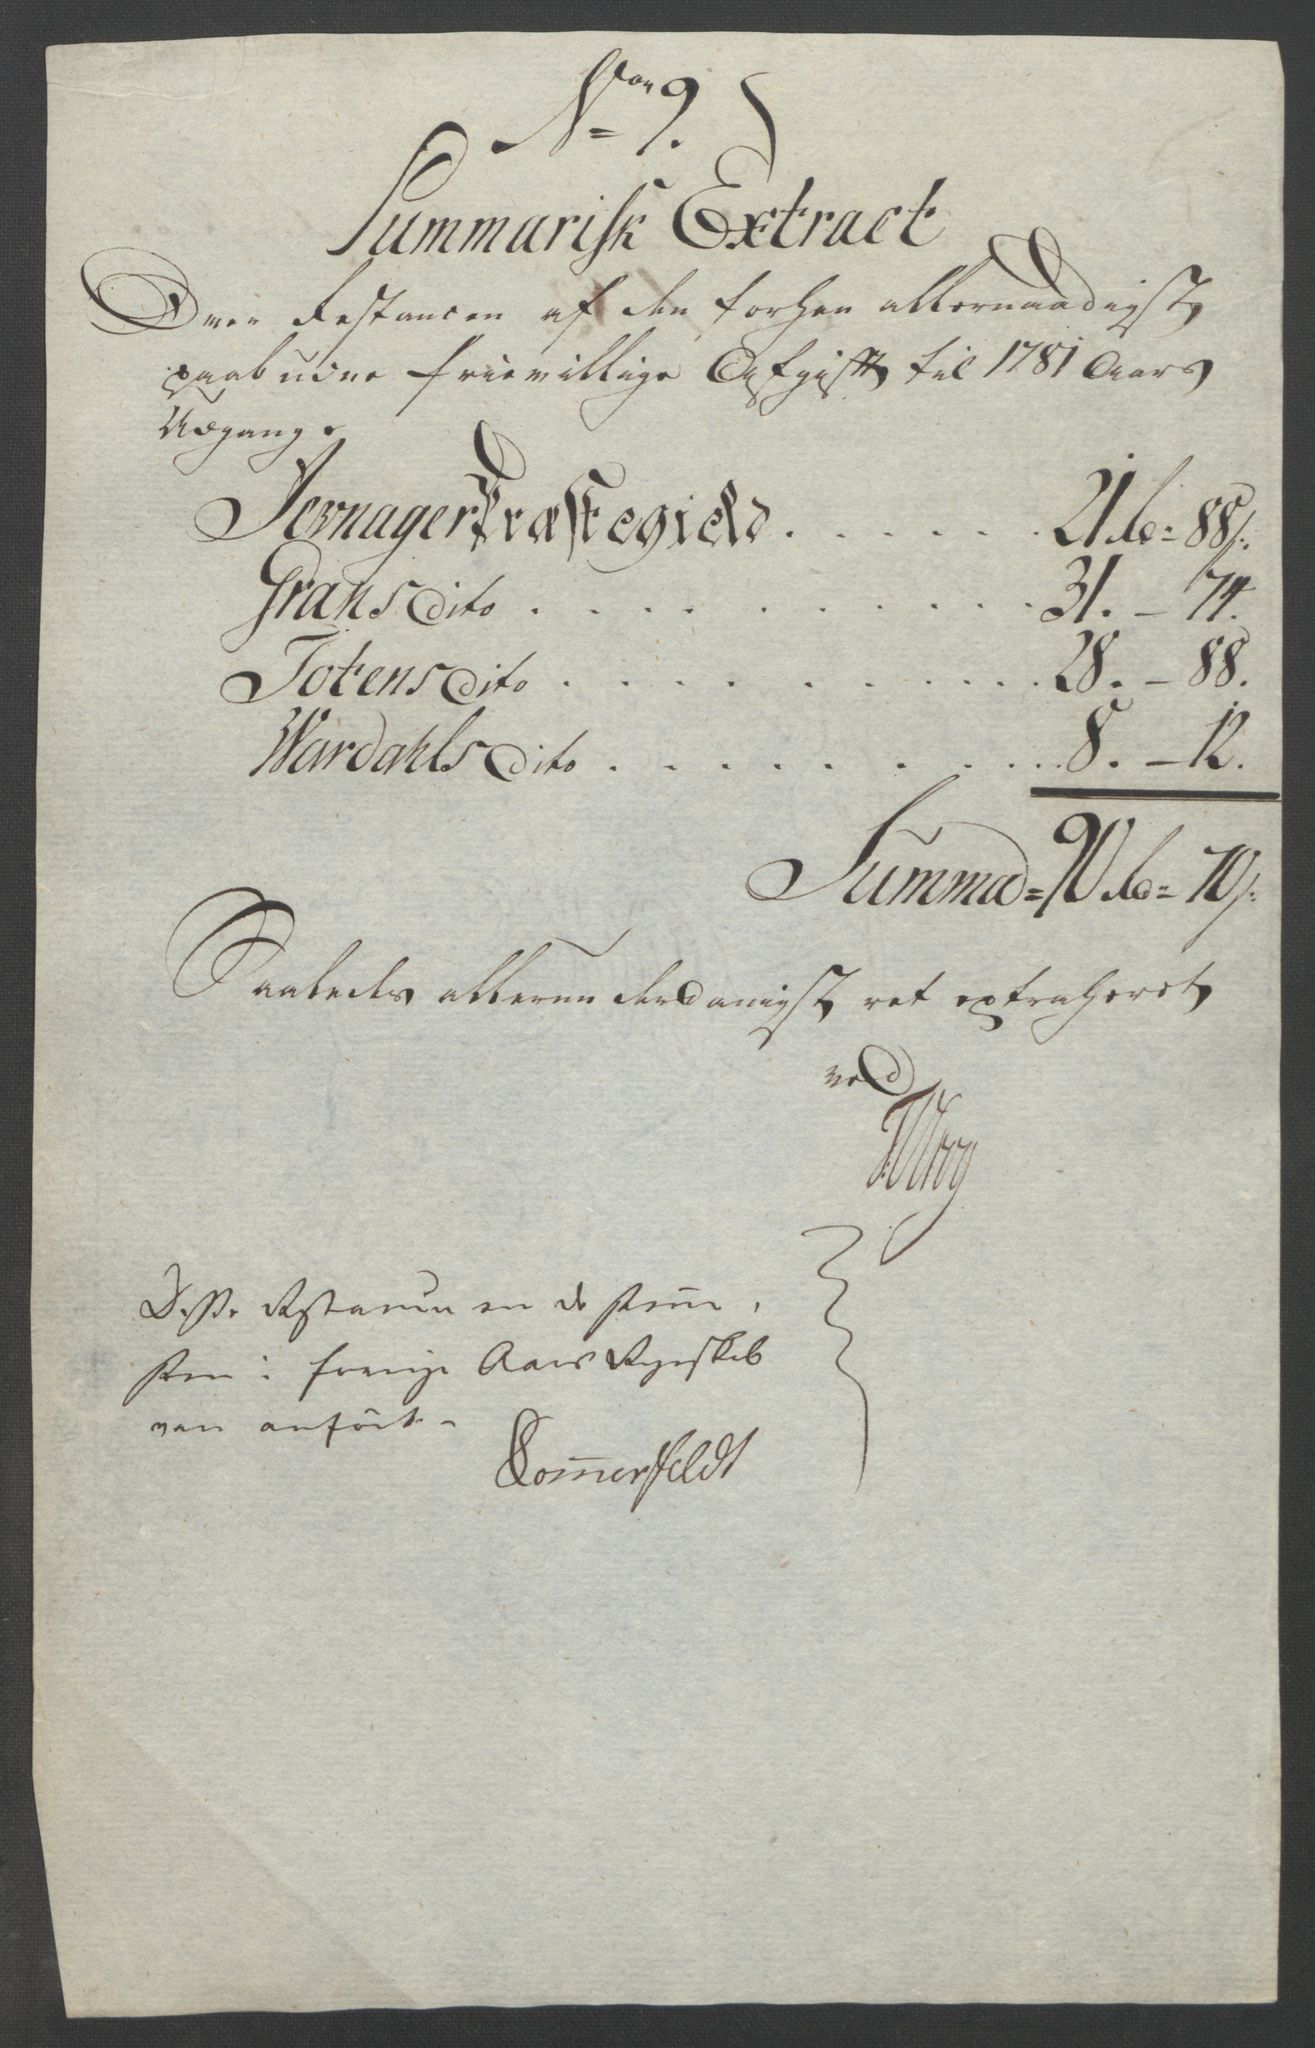 No 9.
Summarisk Extract
Over Restancen af den forhen allernaadigst
paabudne friewillige Afgift til 1781 Aars
Udgang.
Jevnager Præstegield . . . . . . 21 rd = 88 s.
Grans Dito . . . . . . . . . . 31. - 74.
Totens Dito . . . . . . . . . . 28. - 88.
Wardahls Dito . . . . . . . . . 8. - 12.
Summa = 90 rd = 70 s.
Saaledes allerunderdanigst ret extraheret
ved
Disse Restancer ere de samme,
som i forrige Aars Regnskab
var anført.
Sommerfeldt